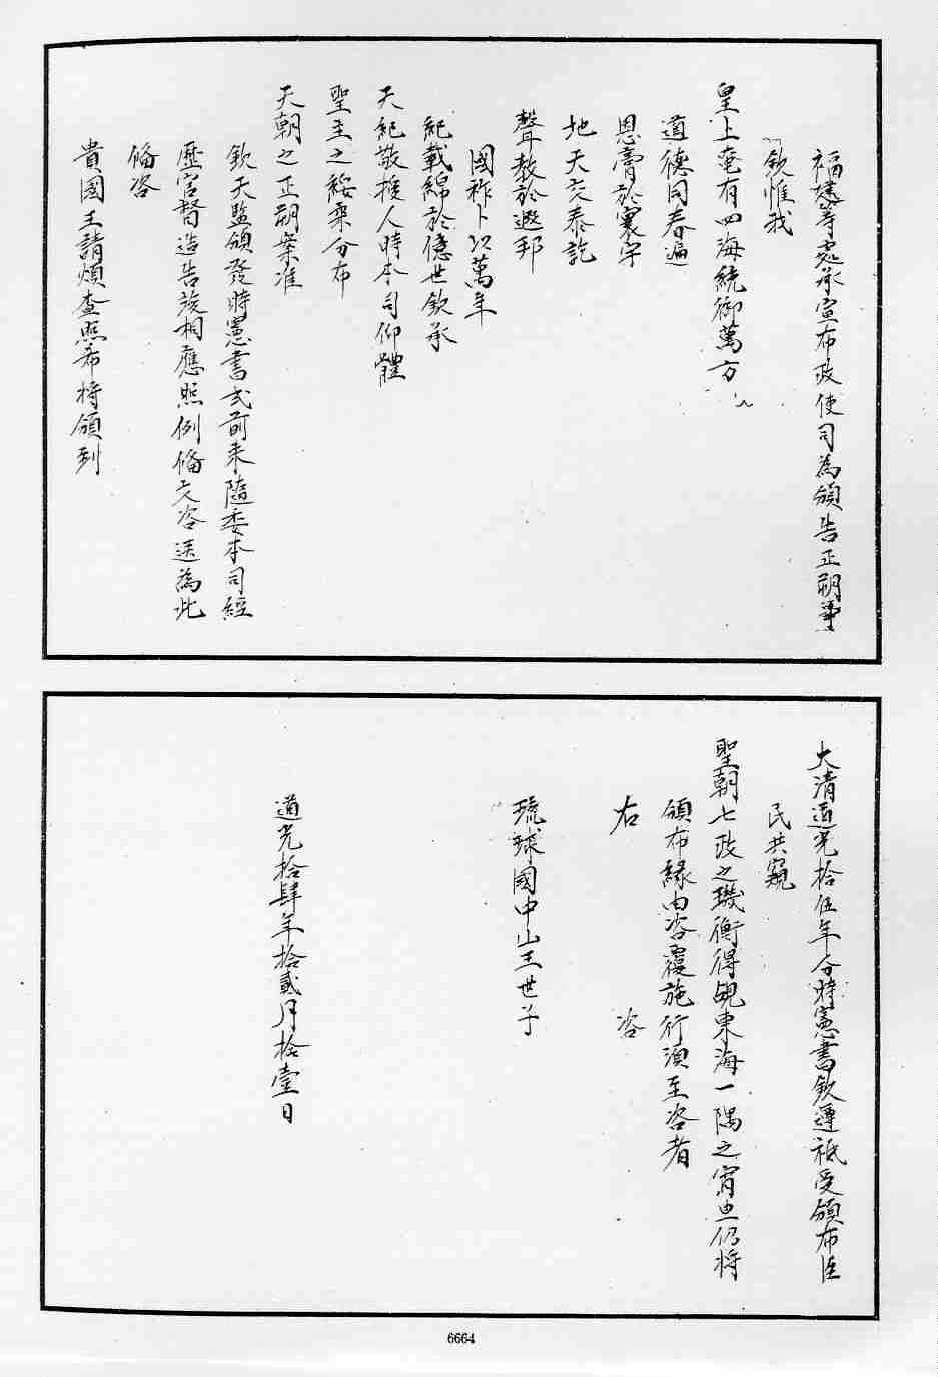 福建等處承宣布政使司為頒告正朔事
欽惟我
皇上奄有四海統御萬方
道德同春遍
恩膏於寰宇
地天交泰訖
聲教於遐邦
國祚卜以萬年
紀載綿於億世欽承
天紀敬授人時本司仰體
聖主之綏乘分布
天朝之正朔案准
欽天監頒發時憲書式前來隨委本司經
歷官督造告竣相應照例備文咨送為此
備咨
貴國王請煩查照希將頒到
大清道光拾伍年分時憲書欽遵祗受頒布臣
民共窺
聖朝七政之璣衡得覘東海一隅之宵也仍將
頒布緣由咨覆施行須至咨者
右咨
琉球國中山王世子
道光拾肆年拾貳月拾壹日
6664